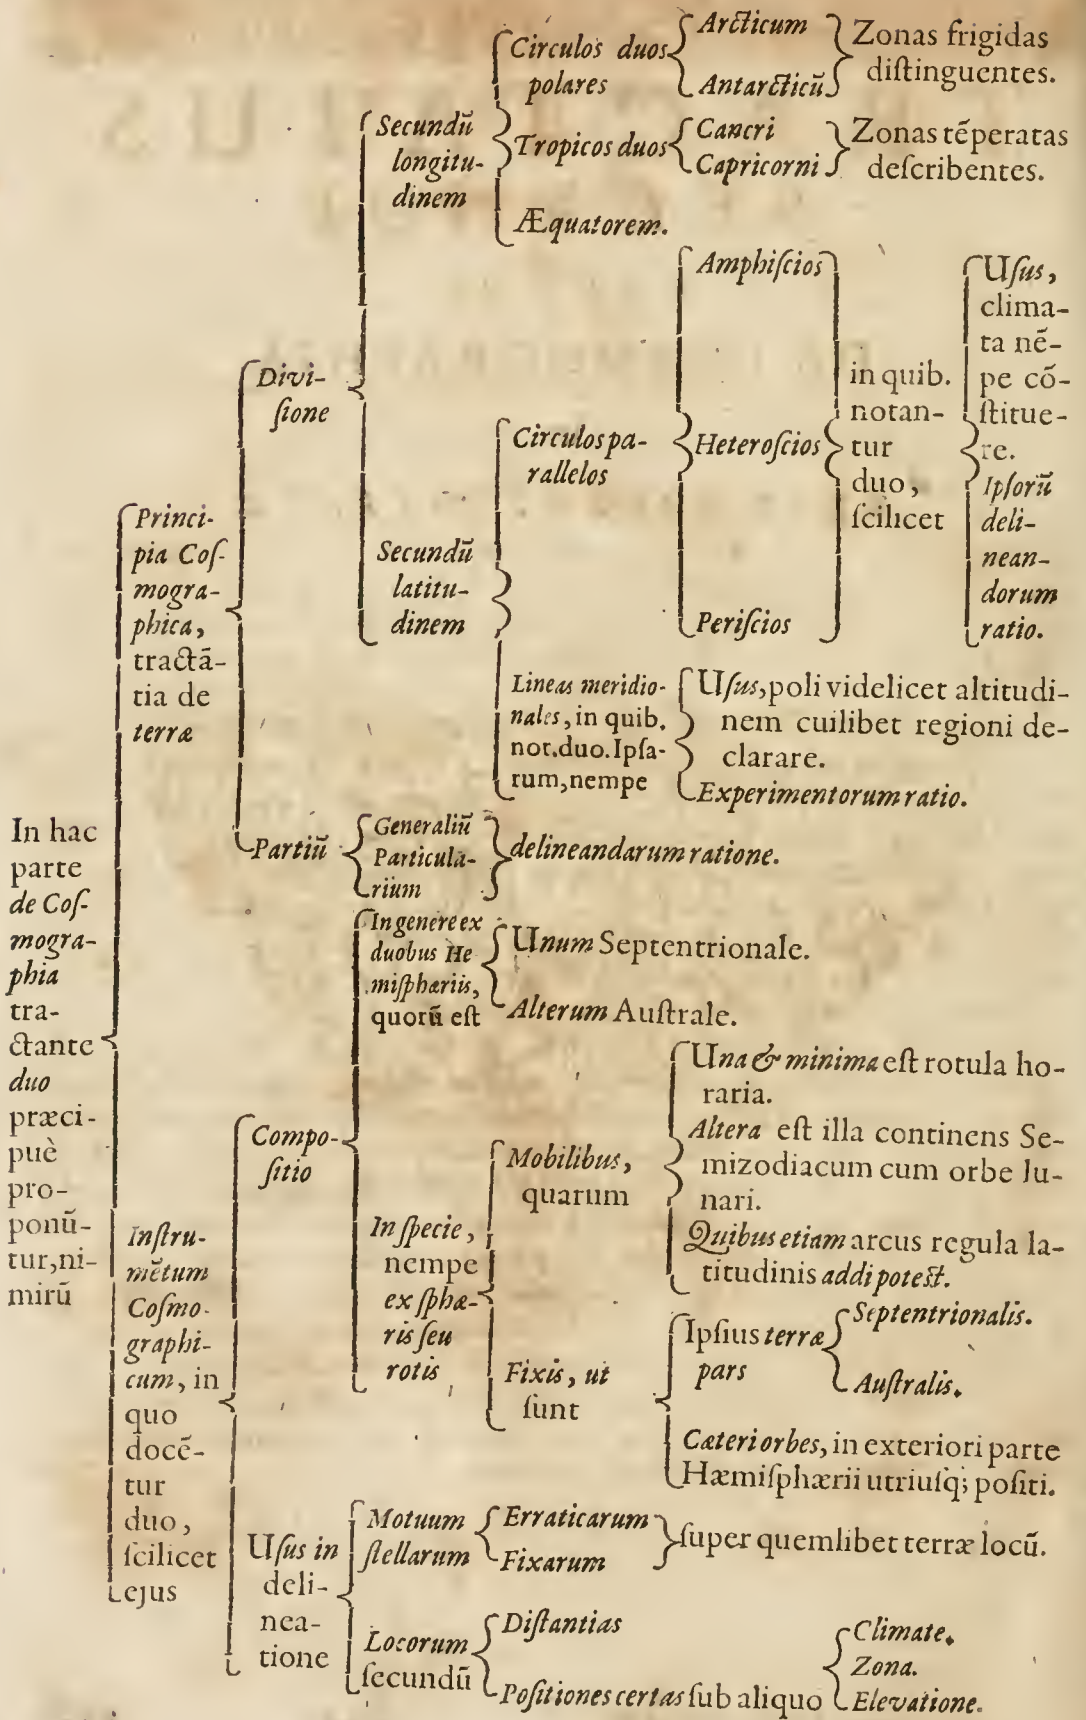 In hac
parte
de Coſ-
mogra-
phia
tra-
ctante
duo
præci-
puè
pro-
ponū-
tur,ni-
mirū
Princi-
pia Coſ-
mogra-
phica,
tractā-
tia de
terræ
Divi-
ſione
Secundū
longitu-
dinem
Circulos duos
polares
Arcticum
Antarcticū
Zonas frigidas
diſtinguentes.
Tropicos duos
Cancri
Capricorni
Zonas tēperatas
deſcribentes.
Æquatorem.
Secundū
latitu-
dinem
Circulos pa-
rallelos
Amphiſcios
Heteroſcios
Periſcios
in quib.
notan-
tur
duo,
ſcilicet
Uſus,
clima-
ta nē-
pe cō-
ſtitue-
re.
Ipſorū
deli-
nean-
dorum
ratio.
Lineas meridio-
nales, in quib.
not.duo.Ipſa-
rum,nempe
Uſus,poli videlicet altitudi-
nem cuilibet regioni de-
clarare.
Experimentorum ratio.
Partiū
Generaliū
Particula-
rium
delineandarum ratione.
Inſtru-
mētum
Coſmo-
graphi-
cum, in
quo
docē-
tur
duo,
ſcilicet
ejus
Compo-
ſitio
In genere ex
duobus He
miſphæriis,
quorū eſt
Unum Septentrionale.
Alterum Auſtrale.
In ſpecie,
nempe
ex ſphæ-
ris ſeu
rotis
Mobilibus,
quarum
Una & minima eſt rotula ho-
raria.
Altera eſt illa continens Se-
mizodiacum cum orbe lu-
nari.
Quibus etiam arcus regula la-
titudinis addi poteſt.
Fixis, ut
ſunt
Ipſius terræ
pars
Septentrionalis.
Auſtralis.
Cæteri orbes, in exteriori parte
Hæmiſphærii utriuſq; poſiti.
Uſus in
deli-
nea-
tione
Motuum
ſtellarum
Erraticarum
Fixarum
ſuper quemlibet terræ locū.
Locorum
ſecundū
Diſtantias
Poſitiones certas ſub aliquo
Climate.
Zona.
Elevatione.